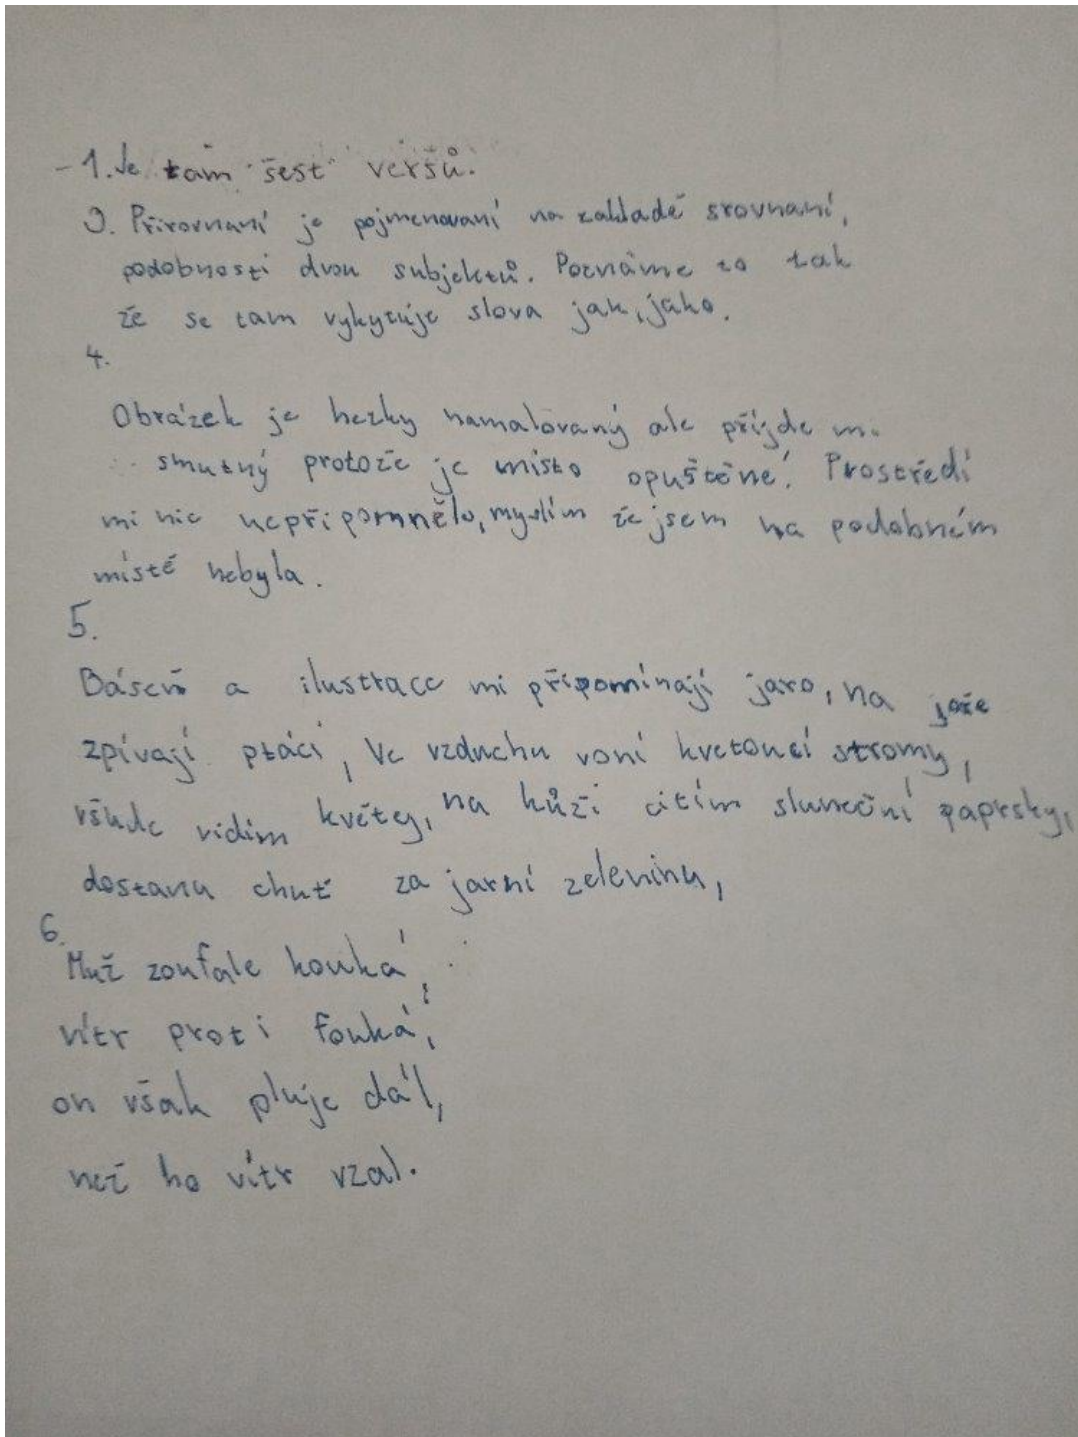 - 1. Je tam šest veršů.
3. Přirovnaní je pojmenovaní na zakladě srovnaní,
podobnosti dvou subjektů. Poznáme to tak
že se tam vykytuje slova jak, jako.
4.
Obrázek je hezky namalovaný ale příjde mi
smutný protože je místo opuštěné. Prostředí
mi nic nepřipomnělo, myslím že jsem na podobném
místě nebyla.
5.
Báseň a ilustrace mi připomínají jaro, na jaře
zpívají ptáci, Ve vzduchu voní kvetoucí stromy,
všude vidím květy, na kůži cítím sluneční paprsky,
dostanu chuť za jarní zeleninu,
6.
Muž zoufale kouká,
vítr proti fouká,
on však pluje dál,
než ho vítr vzal.